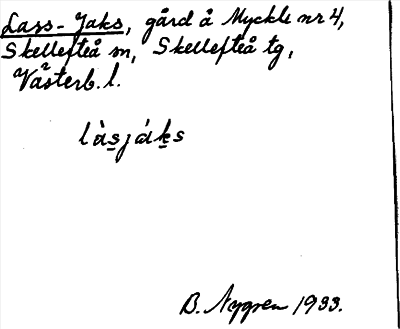 Lass-Jaks, gård å Myckle nr 4,
Skellefteå sn, Skellefteå tg,
Västerb. l.
làs̠ják̠s
B. Nygren 1933.